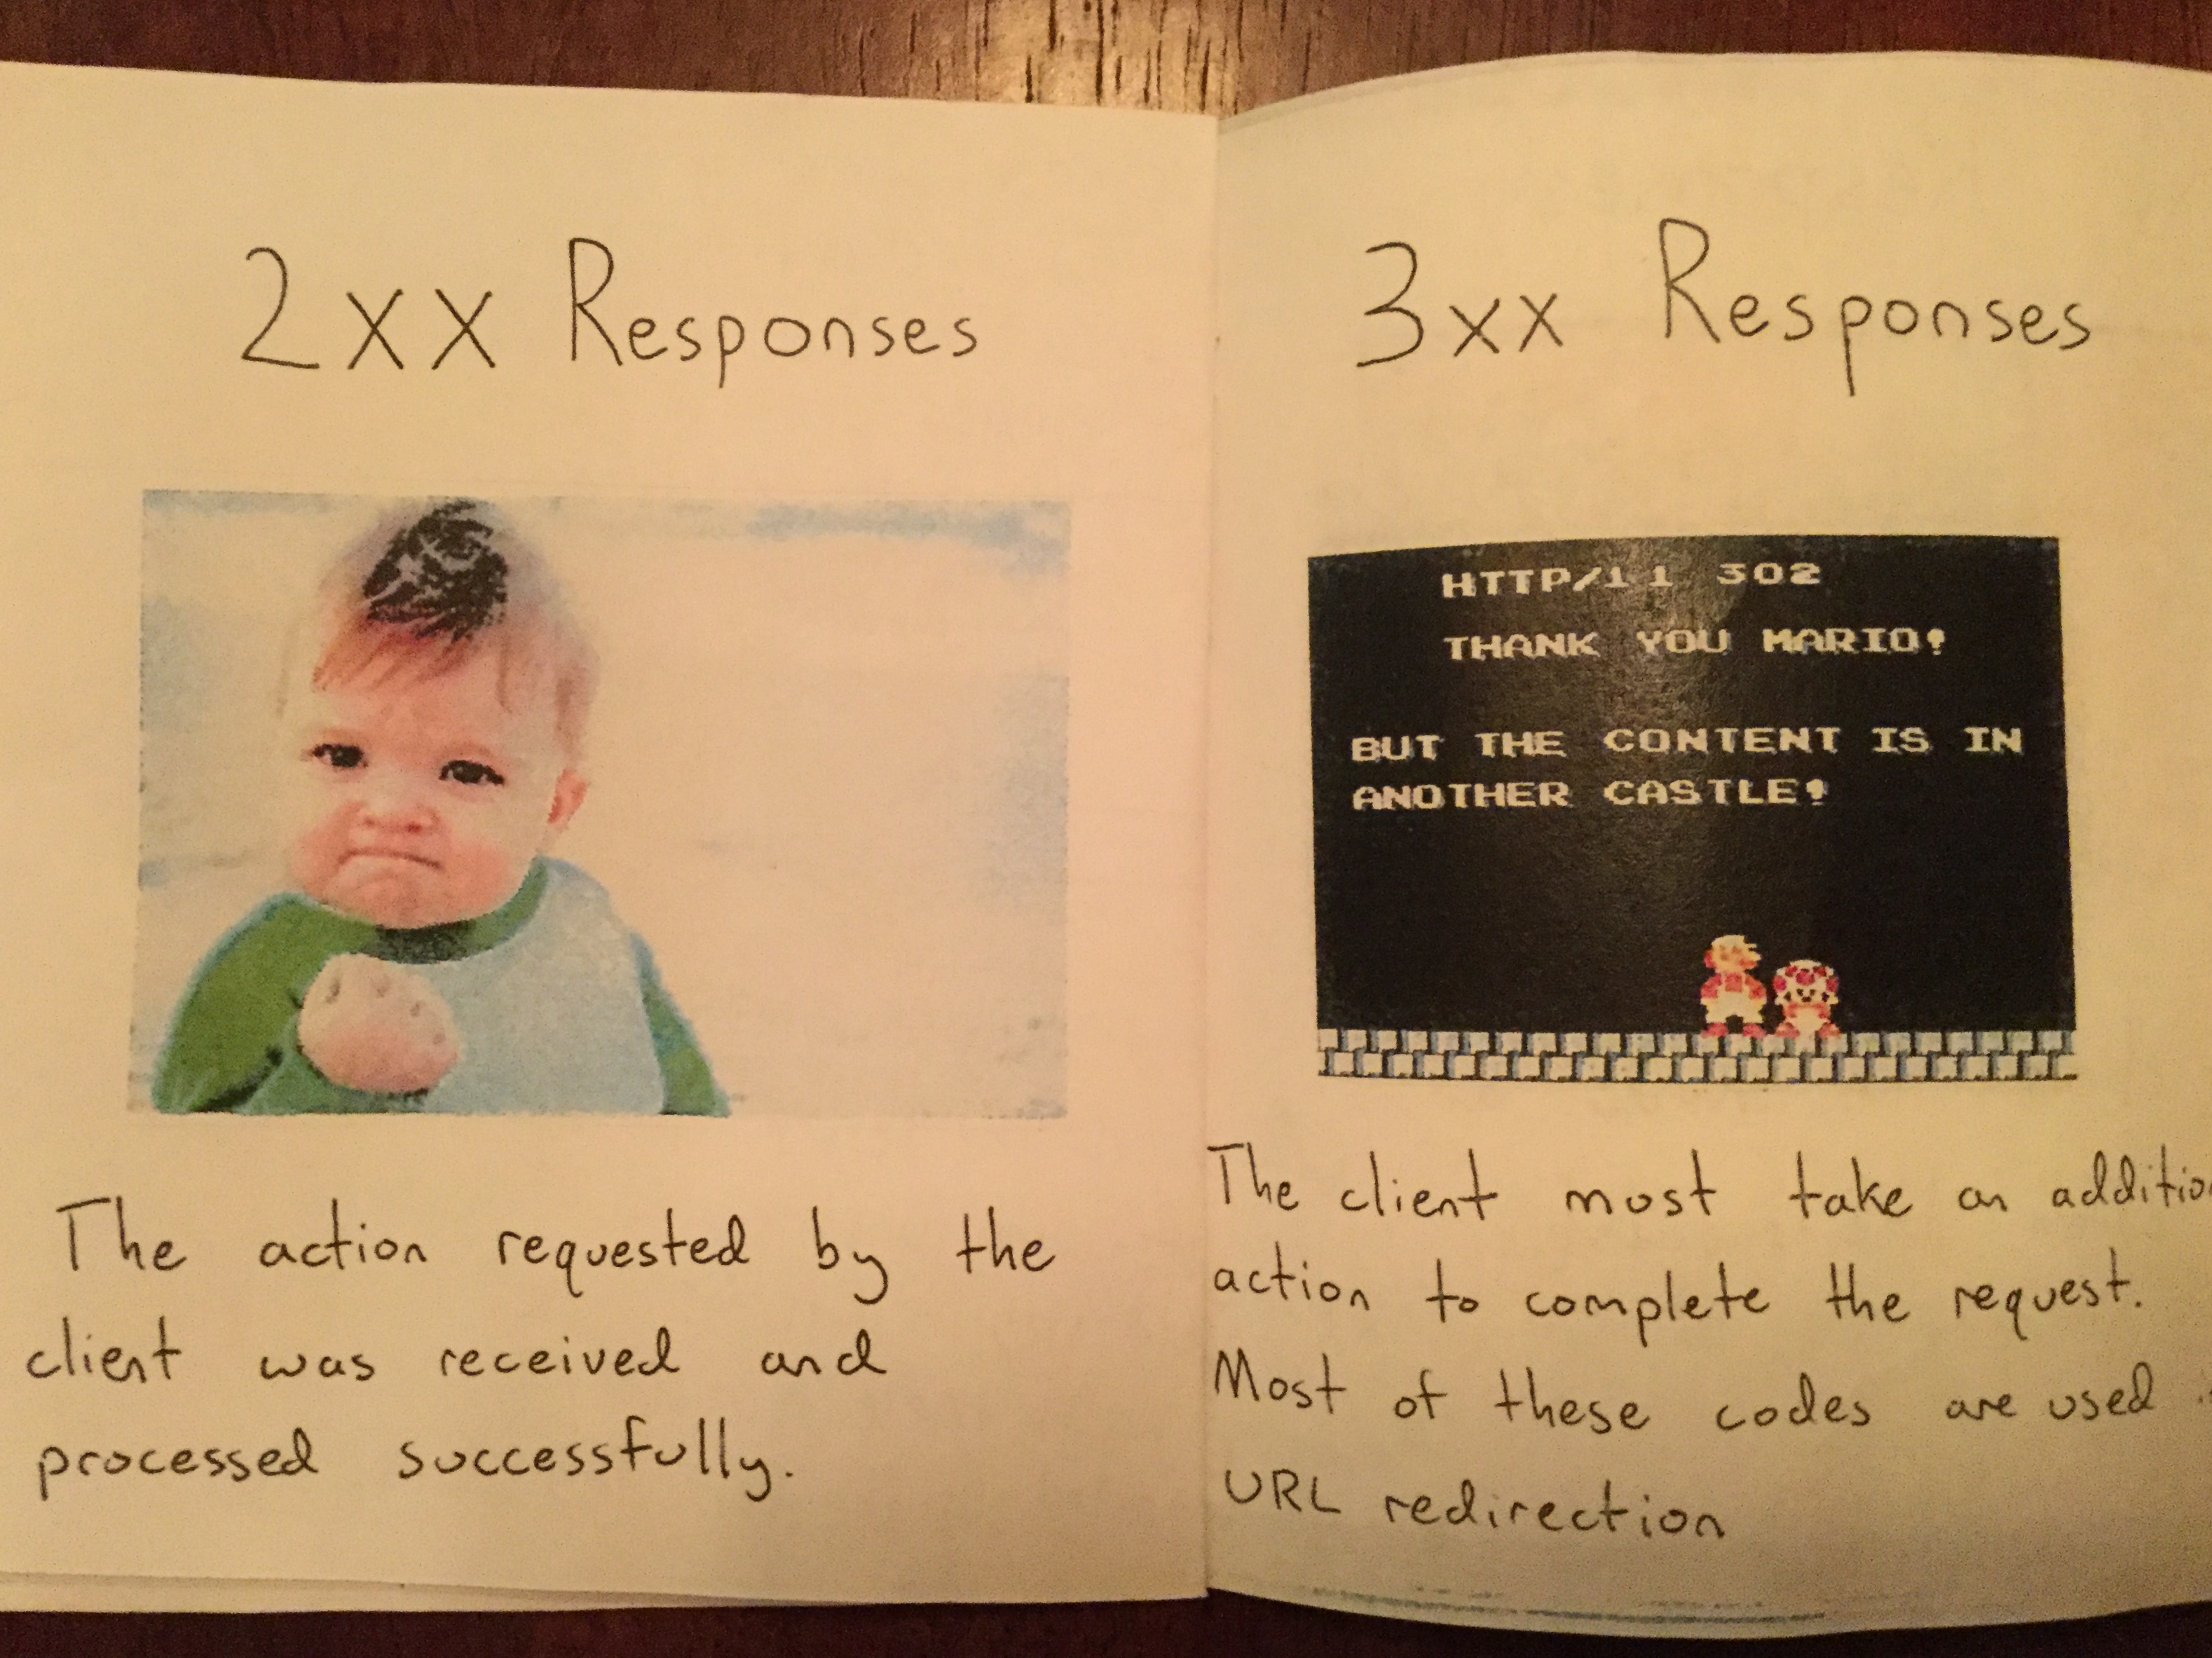 2xx Responses
The action requested by the
client was received and
processed successfully.
3xx Responses
HTTP/1 1 302
THANK YOU MARIO!
BUT THE CONTENT IS IN
ANOTHER CASTLE!
The client must take an
action to complete the request.
Most of these codes are used
URL redirection